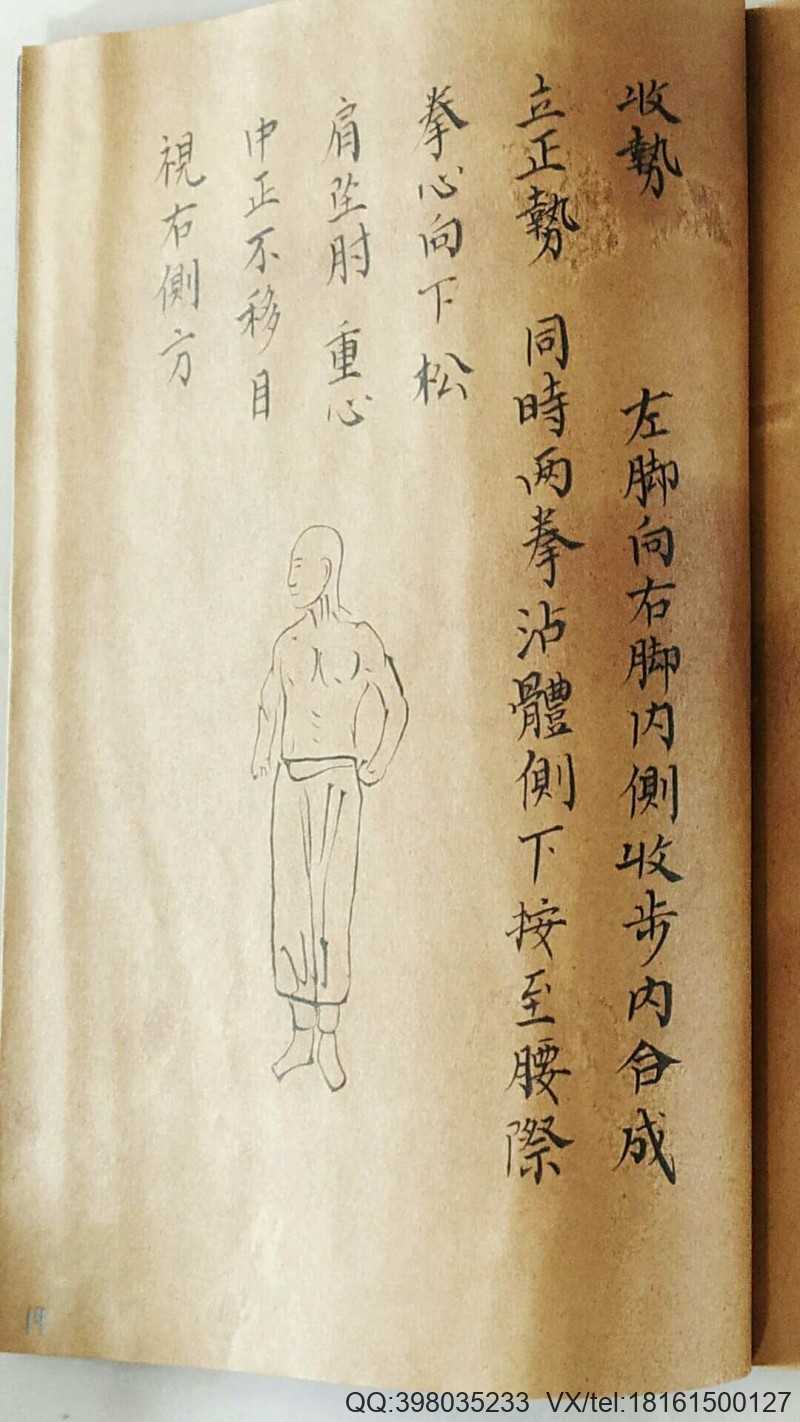 收勢 左脚向右脚内側收步内合成
立正勢 同時两拳沾體側下按至腰際
拳心向下松
肩坠肘 重心
中正不移目
視右側方
19
QQ:398035233 VX/tel:18161500127